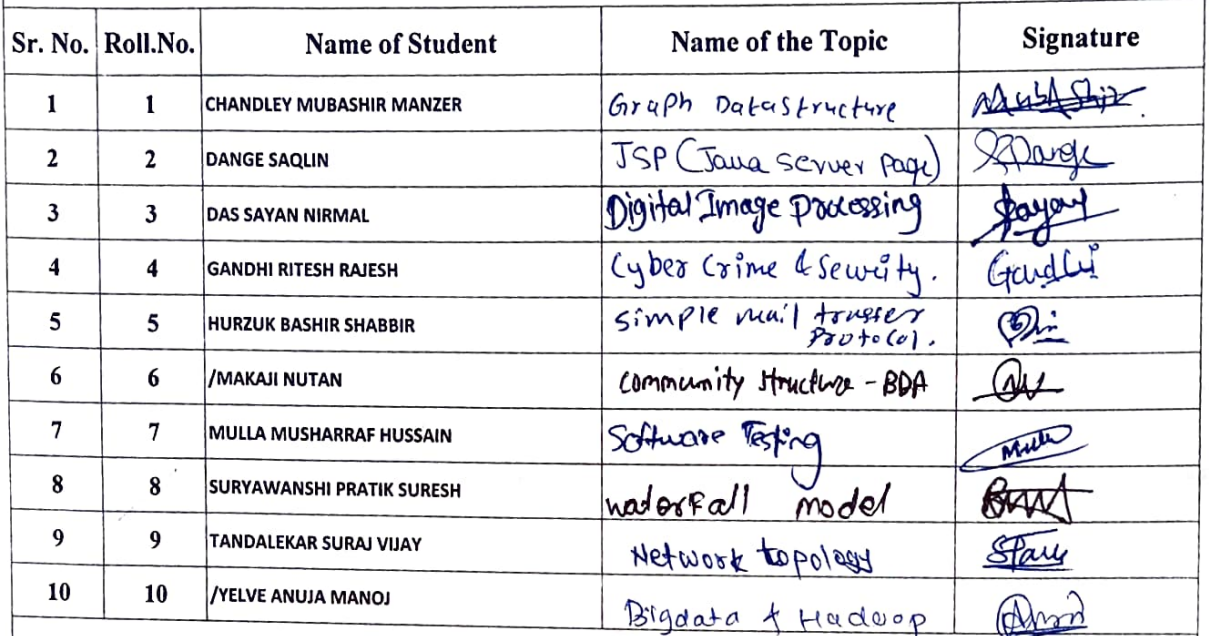 Sr. No. Roll.No. Name of Student Name of the Topic Signature
1 1 CHANDLEY MUBASHIR MANZER Graph Datastructure
2 2 DANGE SAQLIN JSP (Java server page) Dange
3 3 DAS SAYAN NIRMAL Digital Image processing
4 4 GANDHI RITESH RAJESH Cyber Crime & Security. Gandhi
5 5 HURZUK BASHIR SHABBIR simple mail
Protocol.
6 6 /MAKAJI NUTAN community structure - BDA
7 7 MULLA MUSHARRAF HUSSAIN Software Testing Mulla
8 8 SURYAWANSHI PRATIK SURESH waterfall model
9 9 TANDALEKAR SURAJ VIJAY Network topology
10 10 /YELVE ANUJA MANOJ Bigdata & Hadoop